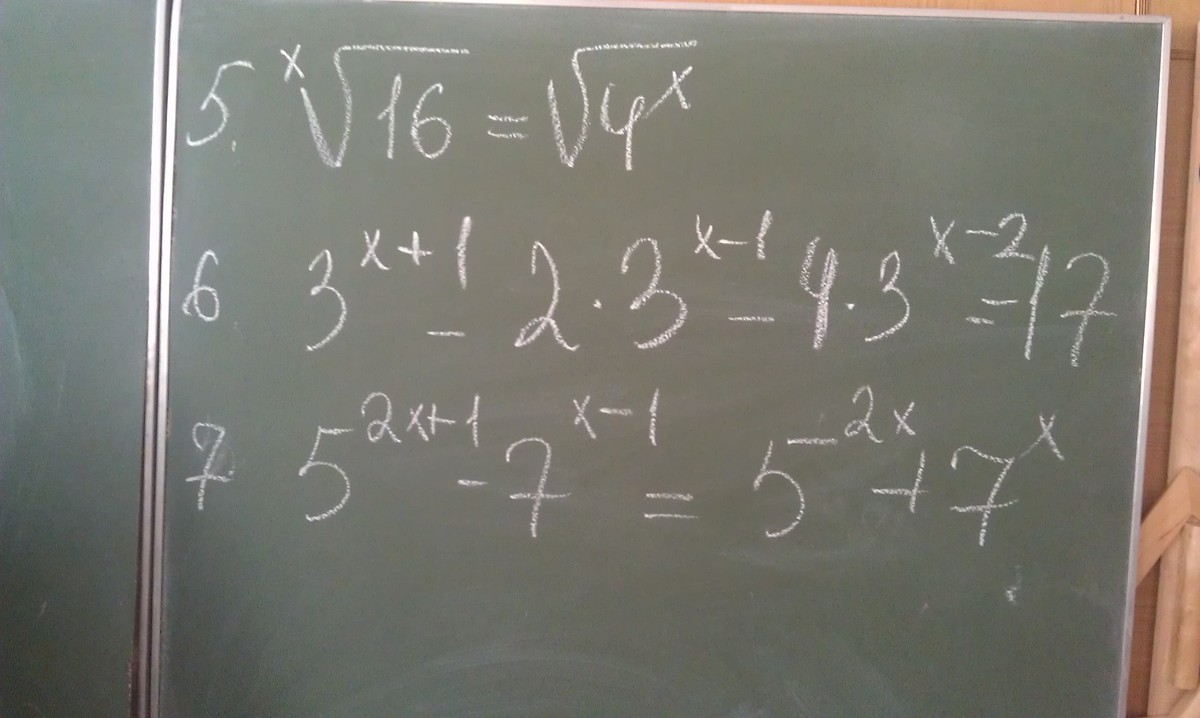 5. ˣ√16 = √4ˣ
6 3ˣ⁺¹ - 2·3ˣ⁻¹ - 4·3ˣ⁻² = 17
7 5²ˣ⁺¹ - 7ˣ⁻¹ = 5⁻²ˣ + 7ˣ